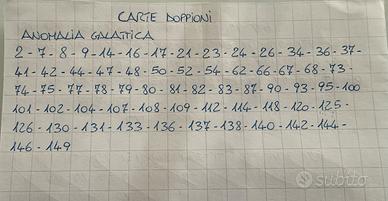 CARTE DOPPIONI
ANOMALIA GALATTICA
2 - 7 - 8 - 9 - 14 - 16 - 17 - 21 - 23 - 24 - 26 - 34 - 36 - 37 -
41 - 42 - 44 - 47 - 48 - 50 - 52 - 54 - 62 - 66 - 67 - 68 - 73 -
74 - 75 - 77 - 78 - 79 - 80 - 81 - 82 - 83 - 87 - 90 - 93 - 95 - 100
101 - 102 - 104 - 107 - 108 - 109 - 112 - 114 - 118 - 120 - 125 -
126 - 130 - 131 - 133 - 136 - 137 - 138 - 140 - 142 - 144 -
146 - 149
subito